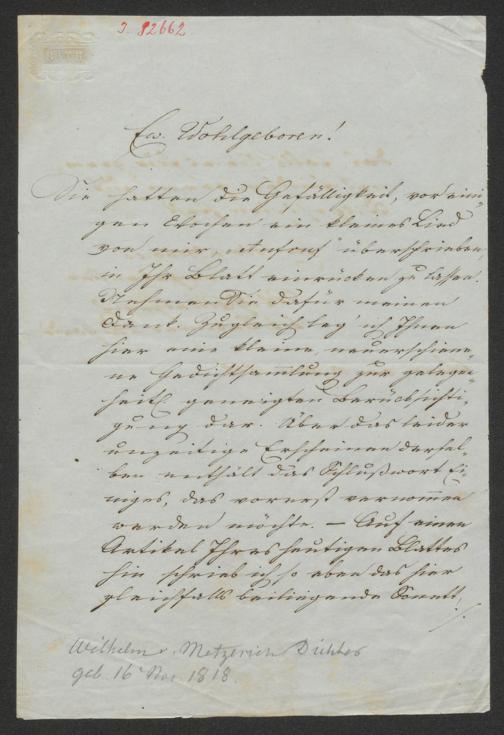 J. 82662
BATH
Ew. Wohlgeboren!
Sie hatten die Gefälligkeit, vor eini-
gen Wochen ein kleines Lied
von mir, überschrieben,
in Ihr Blatt einrücken zu lassen.
Nehmen Sie dafür meinen
Dank. Zugleich leg' ich Ihnen
hier eine kleine, neuerschiene-
ne Gedichtsammlung zur gelegen-
heitl. geneigten Berücksichti-
gung dar. Über das leider
unzeitige Erscheinen dersel-
ben enthält das Schlußwort Ei-
niges, das vorerst vernommen
werden möchte. – Auf einen
Artikel Ihres heutigen Blattes
hin schrieb ich so eben das hier
gleichfalls beiliegende Sonett,
./.
Wilhelm v. Metzerich Dichter
geb. 16t Nov 1818.